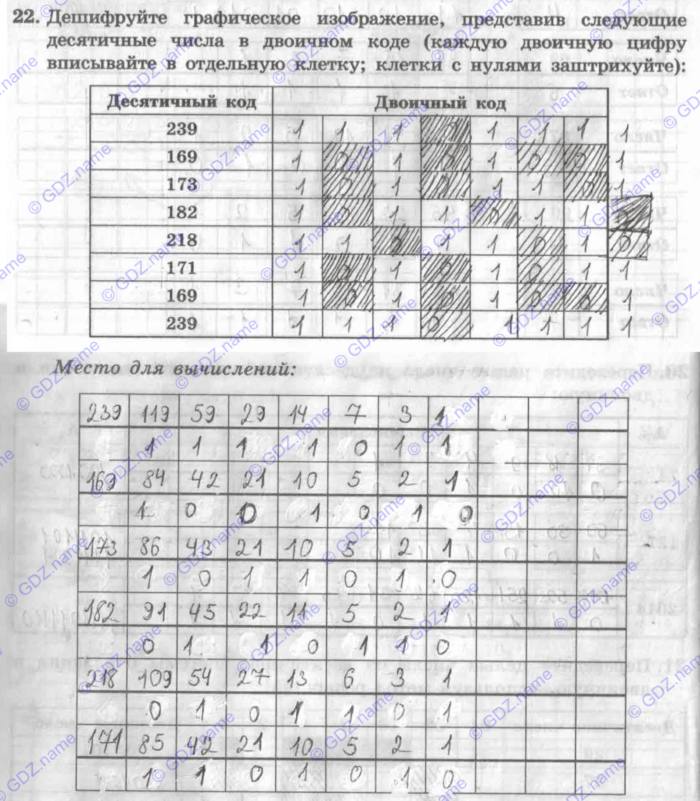 22. Дешифруйте графическое изображение, представив следующие
десятичные числа в двоичном коде (каждую двоичную цифру
вписывайте в отдельную клетку; клетки с нулями заштрихуйте):
Десятичный код Двоичный код
239 1 1 1 0 1 1 1 1
169 1 0 1 0 1 0 0 1
173 1 0 1 0 1 1 0 1
182 1 0 1 1 0 1 1 0
218 1 1 0 1 1 0 1 0
171 1 0 1 0 1 0 1 1
169 1 0 1 0 1 0 0 1
239 1 1 1 0 1 1 1 1
Место для вычислений:
239 119 59 29 14 7 3 1
1 1 1 1 0 1 1
169 84 42 21 10 5 2 1
1 0 0 1 0 1 0
173 86 43 21 10 5 2 1
1 0 1 1 0 1 0
182 91 45 22 11 5 2 1
0 1 1 0 1 1 0
218 109 54 27 13 6 3 1
0 1 0 1 1 0 1
171 85 42 21 10 5 2 1
1 1 0 1 0 1 0
© GDZ.name